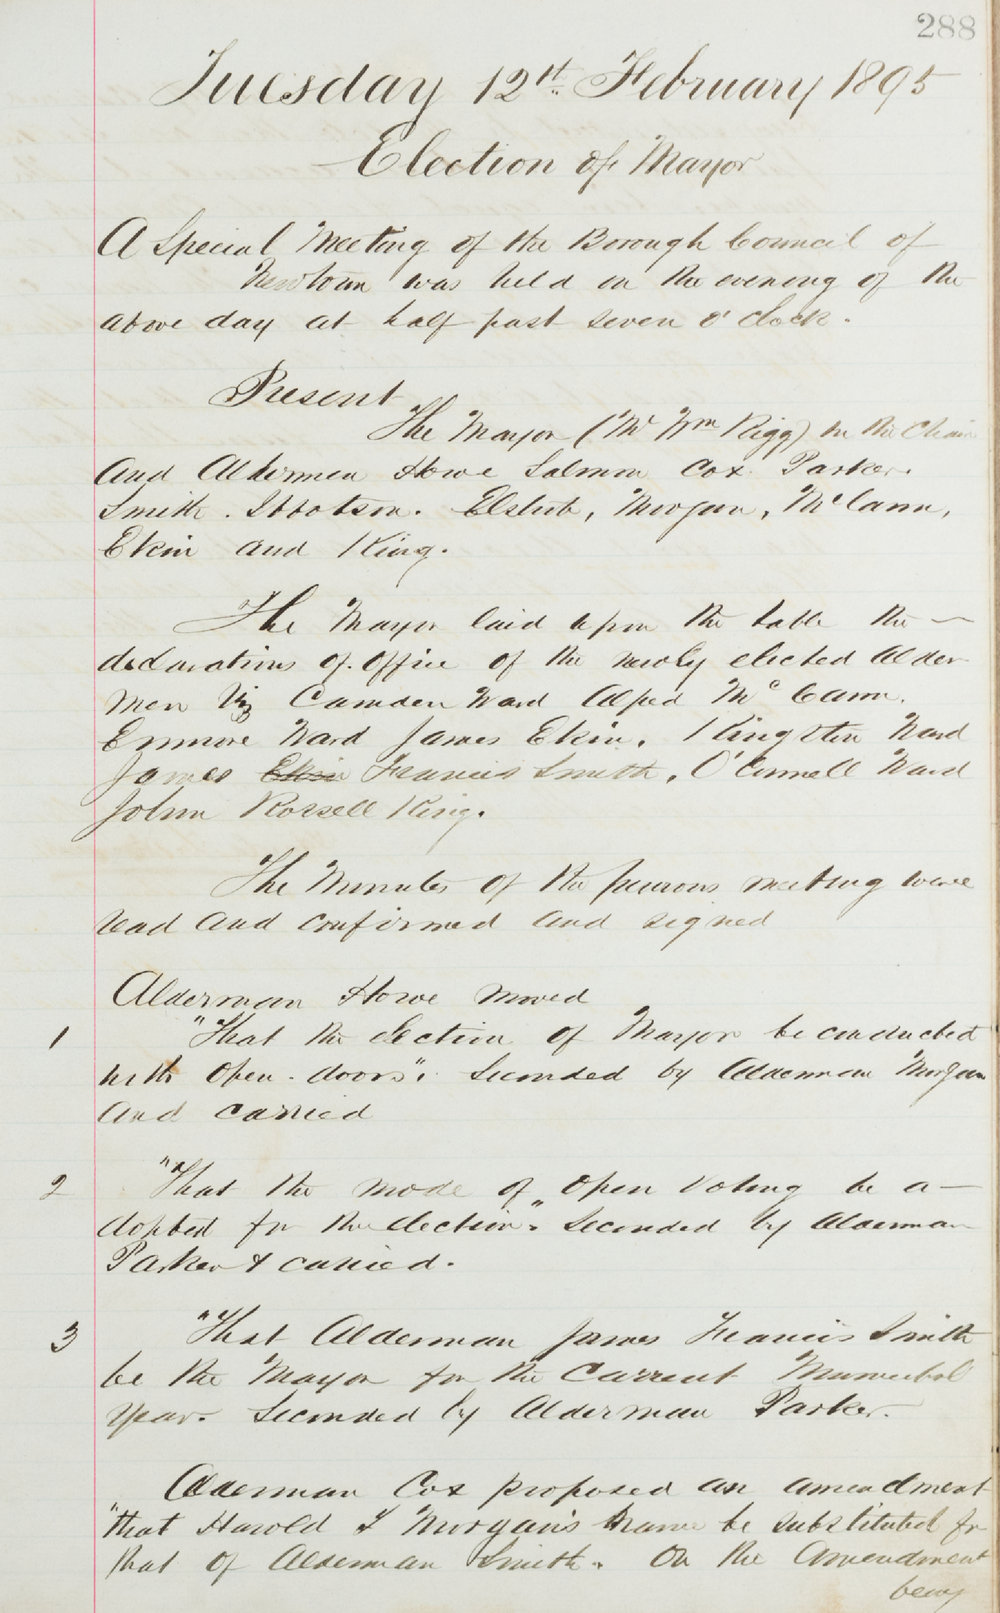 288
Tuesday 12th February 1895
Election of Mayor
A Special Meeting of the Borough Council of
Newtown was held on the evening of the
above day at half past seven o'clock.
Present
The Mayor (Mr Wm Rigg) in the Chair
And Aldermen Howe Salmon Cox Parker.
Smith. Ibbotson. Elstub, Morgan, McCann,
Ekin and King.
The Mayor laid upon the table the —
declarations of office of the newly elected Alder
men Viz Camden Ward Alfred McCann.
Enmore Ward James Ekin. Kingston Ward
James Ekin Francis Smith, O'Connell Ward
John Rossell King.
The Minutes of the previous meeting were
read and confirmed and signed
Alderman Howe moved
1 "That the election of Mayor be conducted
with open doors". Seconded by Alderman Morgan
And carried
2 "That the mode of open Voting be a—
dopted for the election". Seconded by Alderman
Parker & carried.
3 "That Alderman James Francis Smith
be the Mayor for the Current Municipal
Year. Seconded by Alderman Parker.
Alderman Cox proposed an amendment
"that Harold T Morgan's name be substituted for
that of Alderman Smith. On the Amendment
being